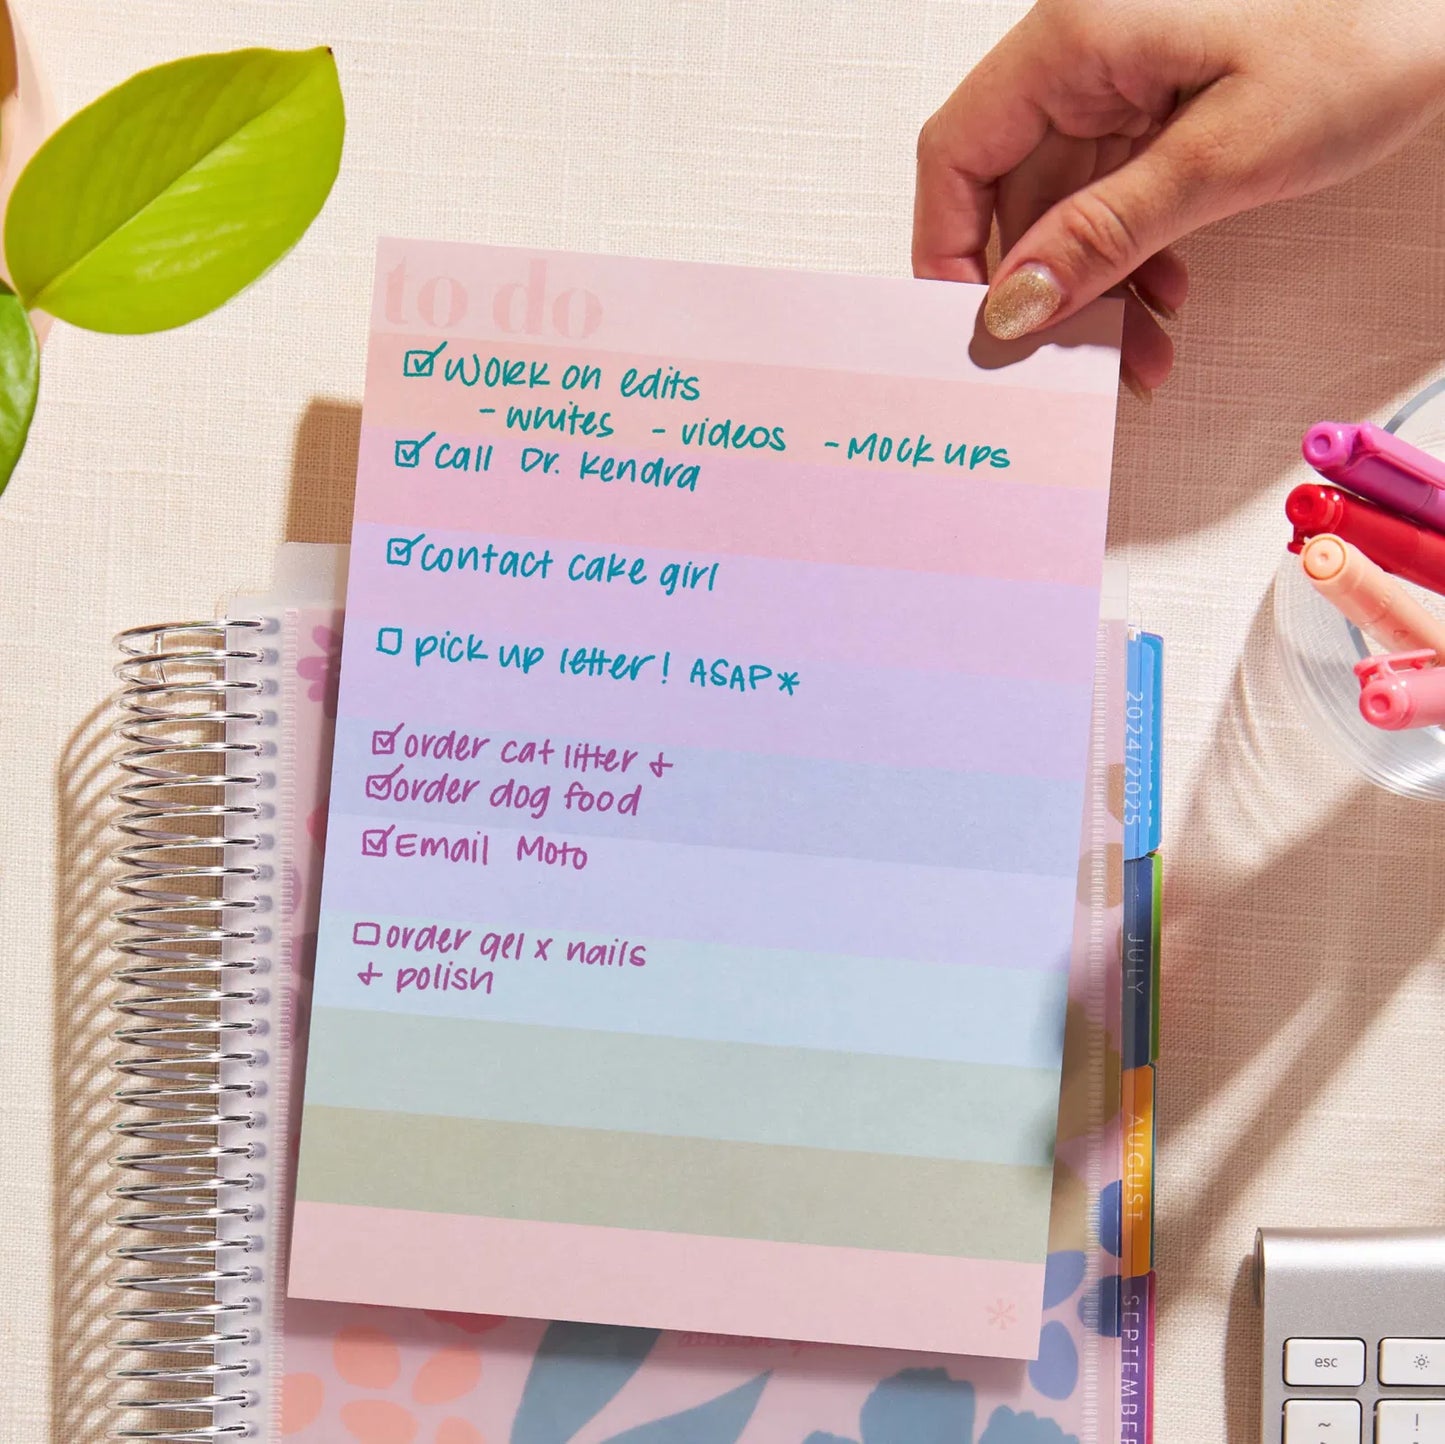 to do
☑ Work on edits
- whites - videos - Mock ups
☑ call Dr. Kendra
☑ contact cake girl
☐ pick up letter! ASAP*
☑ order cat litter +
☑ order dog food
☑ Email Moto
☐ order gel x nails
+ polish
*
2024/2025
JULY
AUGUST
SEPTEMBER
esc
~
!